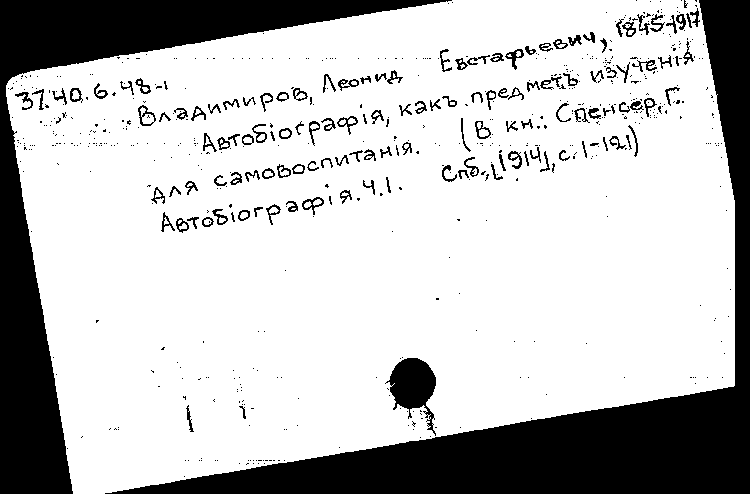 37.40.6.48-1
Владимиров, Леонид Евстафьевич, 1845-1917
Автобіографія, какъ предметъ изученія
для самовоспитанія. (В кн.: Спенсер, Г.
Автобіографія. Ч.1. Спб., [1914], с. 1-121)